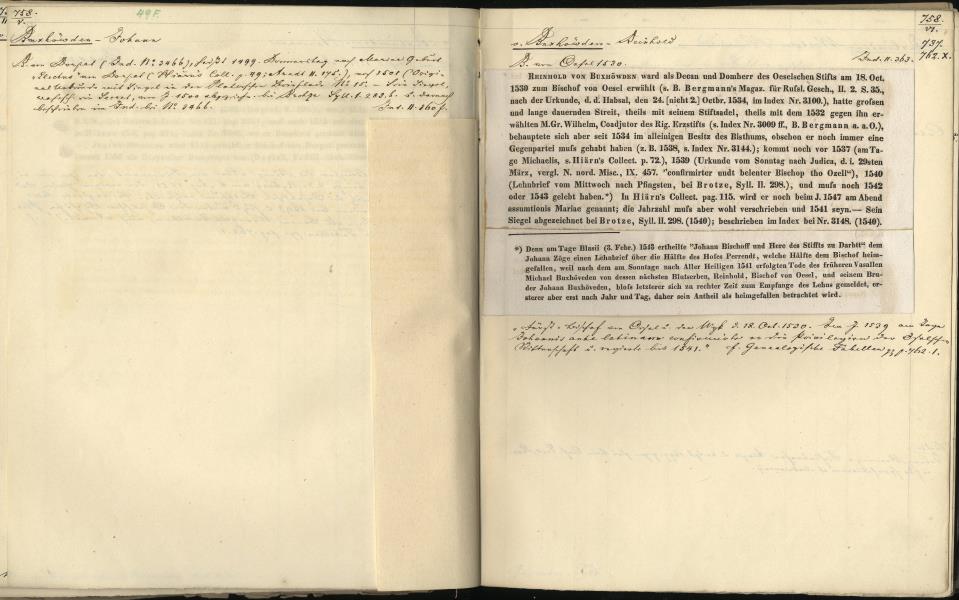 758.
v.
49F.
Buxhöwden - Johann
B. von Oesel (Ind. Nr. 3466), 1499. Donnerstag nach Mariae Geburt
Oesel (Hiärns Coll. p. 49; Arndt II. 175.), 1501 (Origi-
Nr. 15. - Sein Siegel,
1500 bei Brotze Syll. I. 283. b. u. darnach
beschrieben im Ind. bei Nr. 3466. Ind. II. 360 f.
758.
VI.
737.
762. X.
v. Buxhöwden - Reinhold
B. von Oesel 1530. Ind. II. 363.
REINHOLD VON BUXHÖWDEN ward als Decan und Domherr des Oeselschen Stifts am 18. Oct.
1530 zum Bischof von Oesel erwählt (s. B. Bergmann's Magaz. für Rußl. Gesch., II. 2. S. 35.,
nach der Urkunde, d. d. Habsal, den 24. [nicht 2.] Octbr. 1534, im Index Nr. 3100.), hatte großen
und lange dauernden Streit, theils mit seinem Stiftsadel, theils mit dem 1532 gegen ihn er-
wählten M.Gr. Wilhelm, Coadjutor des Rig. Erzstifts (s. Index Nr. 3009 ff., B. Bergmann a. a. O.),
behauptete sich aber seit 1534 im alleinigen Besitz des Bisthums, obschon er noch immer eine
Gegenpartei muß gehabt haben (z. B. 1538, s. Index Nr. 3144.); kommt noch vor 1537 (am Ta-
ge Michaelis, s. Hiärn's Collect. p. 72.), 1539 (Urkunde vom Sonntag nach Judica, d. i. 29sten
März, vergl. N. nord. Misc., IX. 457. "confirmirter undt belenter Bischop tho Ozell"), 1540
(Lehnbrief vom Mittwoch nach Pfingsten, bei Brotze, Syll. II. 298.), und muß noch 1542
oder 1543 gelebt haben.*) In Hiärn's Collect. pag. 115. wird er noch beim J. 1547 am Abend
assumtionis Mariae genannt; die Jahrzahl muß aber wohl verschrieben und 1541 seyn.— Sein
Siegel abgezeichnet bei Brotze, Syll. II. 298. (1540); beschrieben im Index bei Nr. 3148. (1540).
*) Denn am Tage Blasii (3. Febr.) 1543 ertheilte "Johann Bischoff und Here des Stiffts zu Darbtt" dem
Johann Zöge einen Lehnbrief über die Hälfte des Hofes Perrendt, welche Hälfte dem Bischof heim-
gefallen, weil nach dem am Sonntage nach Aller Heiligen 1541 erfolgten Tode des früheren Vasallen
Michael Buxhöveden von dessen nächsten Blutserben, Reinhold, Bischof von Oesel, und seinem Bru-
der Johann Buxhöveden, bloß letzterer sich zu rechter Zeit zum Empfange des Lehns gemeldet, er-
sterer aber erst nach Jahr und Tag, daher sein Antheil als heimgefallen betrachtet wird.
Bischof von Oesel u. der Wyk d. 18. Oct. 1530. Im J. 1539 am Tage
Johannis ante latinam confirmirte er die Privilegien der Öselschen
Ritterschaft u. regierte bis 1541." cf. Genealogische Tabellen p. 462. 1.